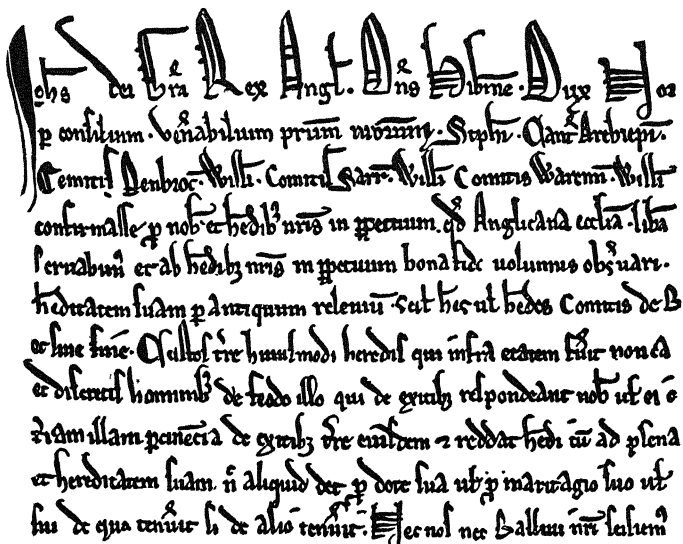 Johs dei Gra Rex Angl. Dns Hibnie. Dux Nor
p consilium. Venabilium prium nrorum. Stephi. Cant Archiepi.
Comitis Penbroc. Willi. Comitis Sarr. Willi Comitis Warenn. Willi
confirmasse p nob et hedib nris in ppetuum. qd Anglicana ecclia. liba
servabim et ab hedibz nris in ppetuum bona fide volumus obsvari.
heditatem suam p antiquum releviu. Scil hes ul hedes Comitis de B
et sine fine. Custos tre huiusmodi heredis qui infra etatem fuit non ca
et discretis hominib de feodo illo qui de exitibz respondeant nob ul ei
illam ptinencia de exitibz tre eiusdem ⁊ reddat hedi cu ad plena
et hereditatem suam. n aliquid det p dote sua ul p maritagio suo ul
sui de qua tenuit de alio tenuit. Nec nos nec Ballivi nri seisiem